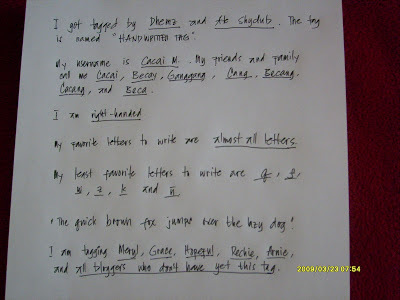 I got tagged by Dhemz and Ate shydub. The tag
is named "HANDWRITTEN TAG".
My username is Cacai M. My friends and family
call me Cacai, Becay, Ganggang, Cang, Eecang,
Cacang, and Eeca.
I am right-handed
My favorite letters to write are almost all letters.
My least favorite letters to write are q, p,
w, z, k and n.
"The quick brown fox jumps over the lazy dog".
I am tagging Meryl, Grace, Hopeful, Rechie, Arnie,
and all bloggers who don't have yet this tag.
2009/03/23 07:54